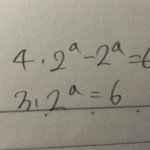 4 · 2^a - 2^a = 6
3 · 2^a = 6